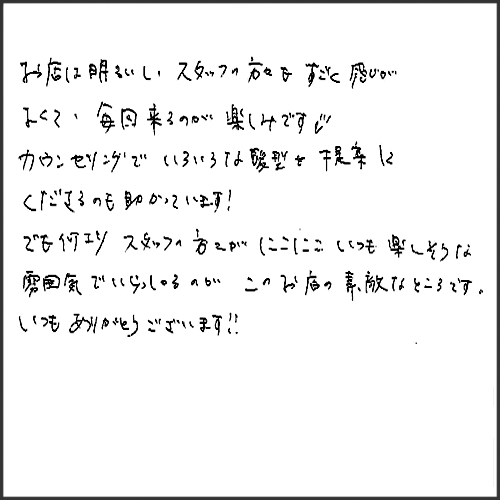 お店は明るいし スタッフの方々も すごく感じが
よくて、毎回来るのが 楽しみです♪
カウンセリングで いろいろな髪型を 提案して
くださるのも助かっています!
でも何より スタッフの方々が にこにこ いつも 楽しそうな
雰囲気でいらっしゃるのが このお店の 素敵なところです。
いつも ありがとうございます!!